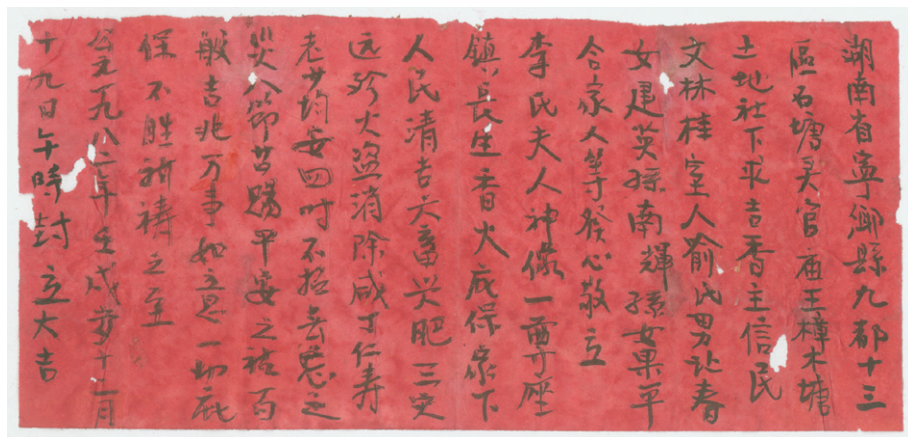 湖南省寧鄉縣九都十三
區石塘灵官庙王樟木塘
土地社下求吉香主信民
文林桂室人喻氏男让春
女建英孫南輝孫女果平
合家人等發心敬立
李氏夫人神像一尊座
鎮長生香火庇保家下
人民清吉六畜兴肥三灾
远殄火盗消除咸丁仁寿
老少均安四时不招无忌之
災八節
般吉兆万事如意一切庇
保不胜祈祷之至
公元一九八二年壬戌岁十二月
十九日午時封立大吉